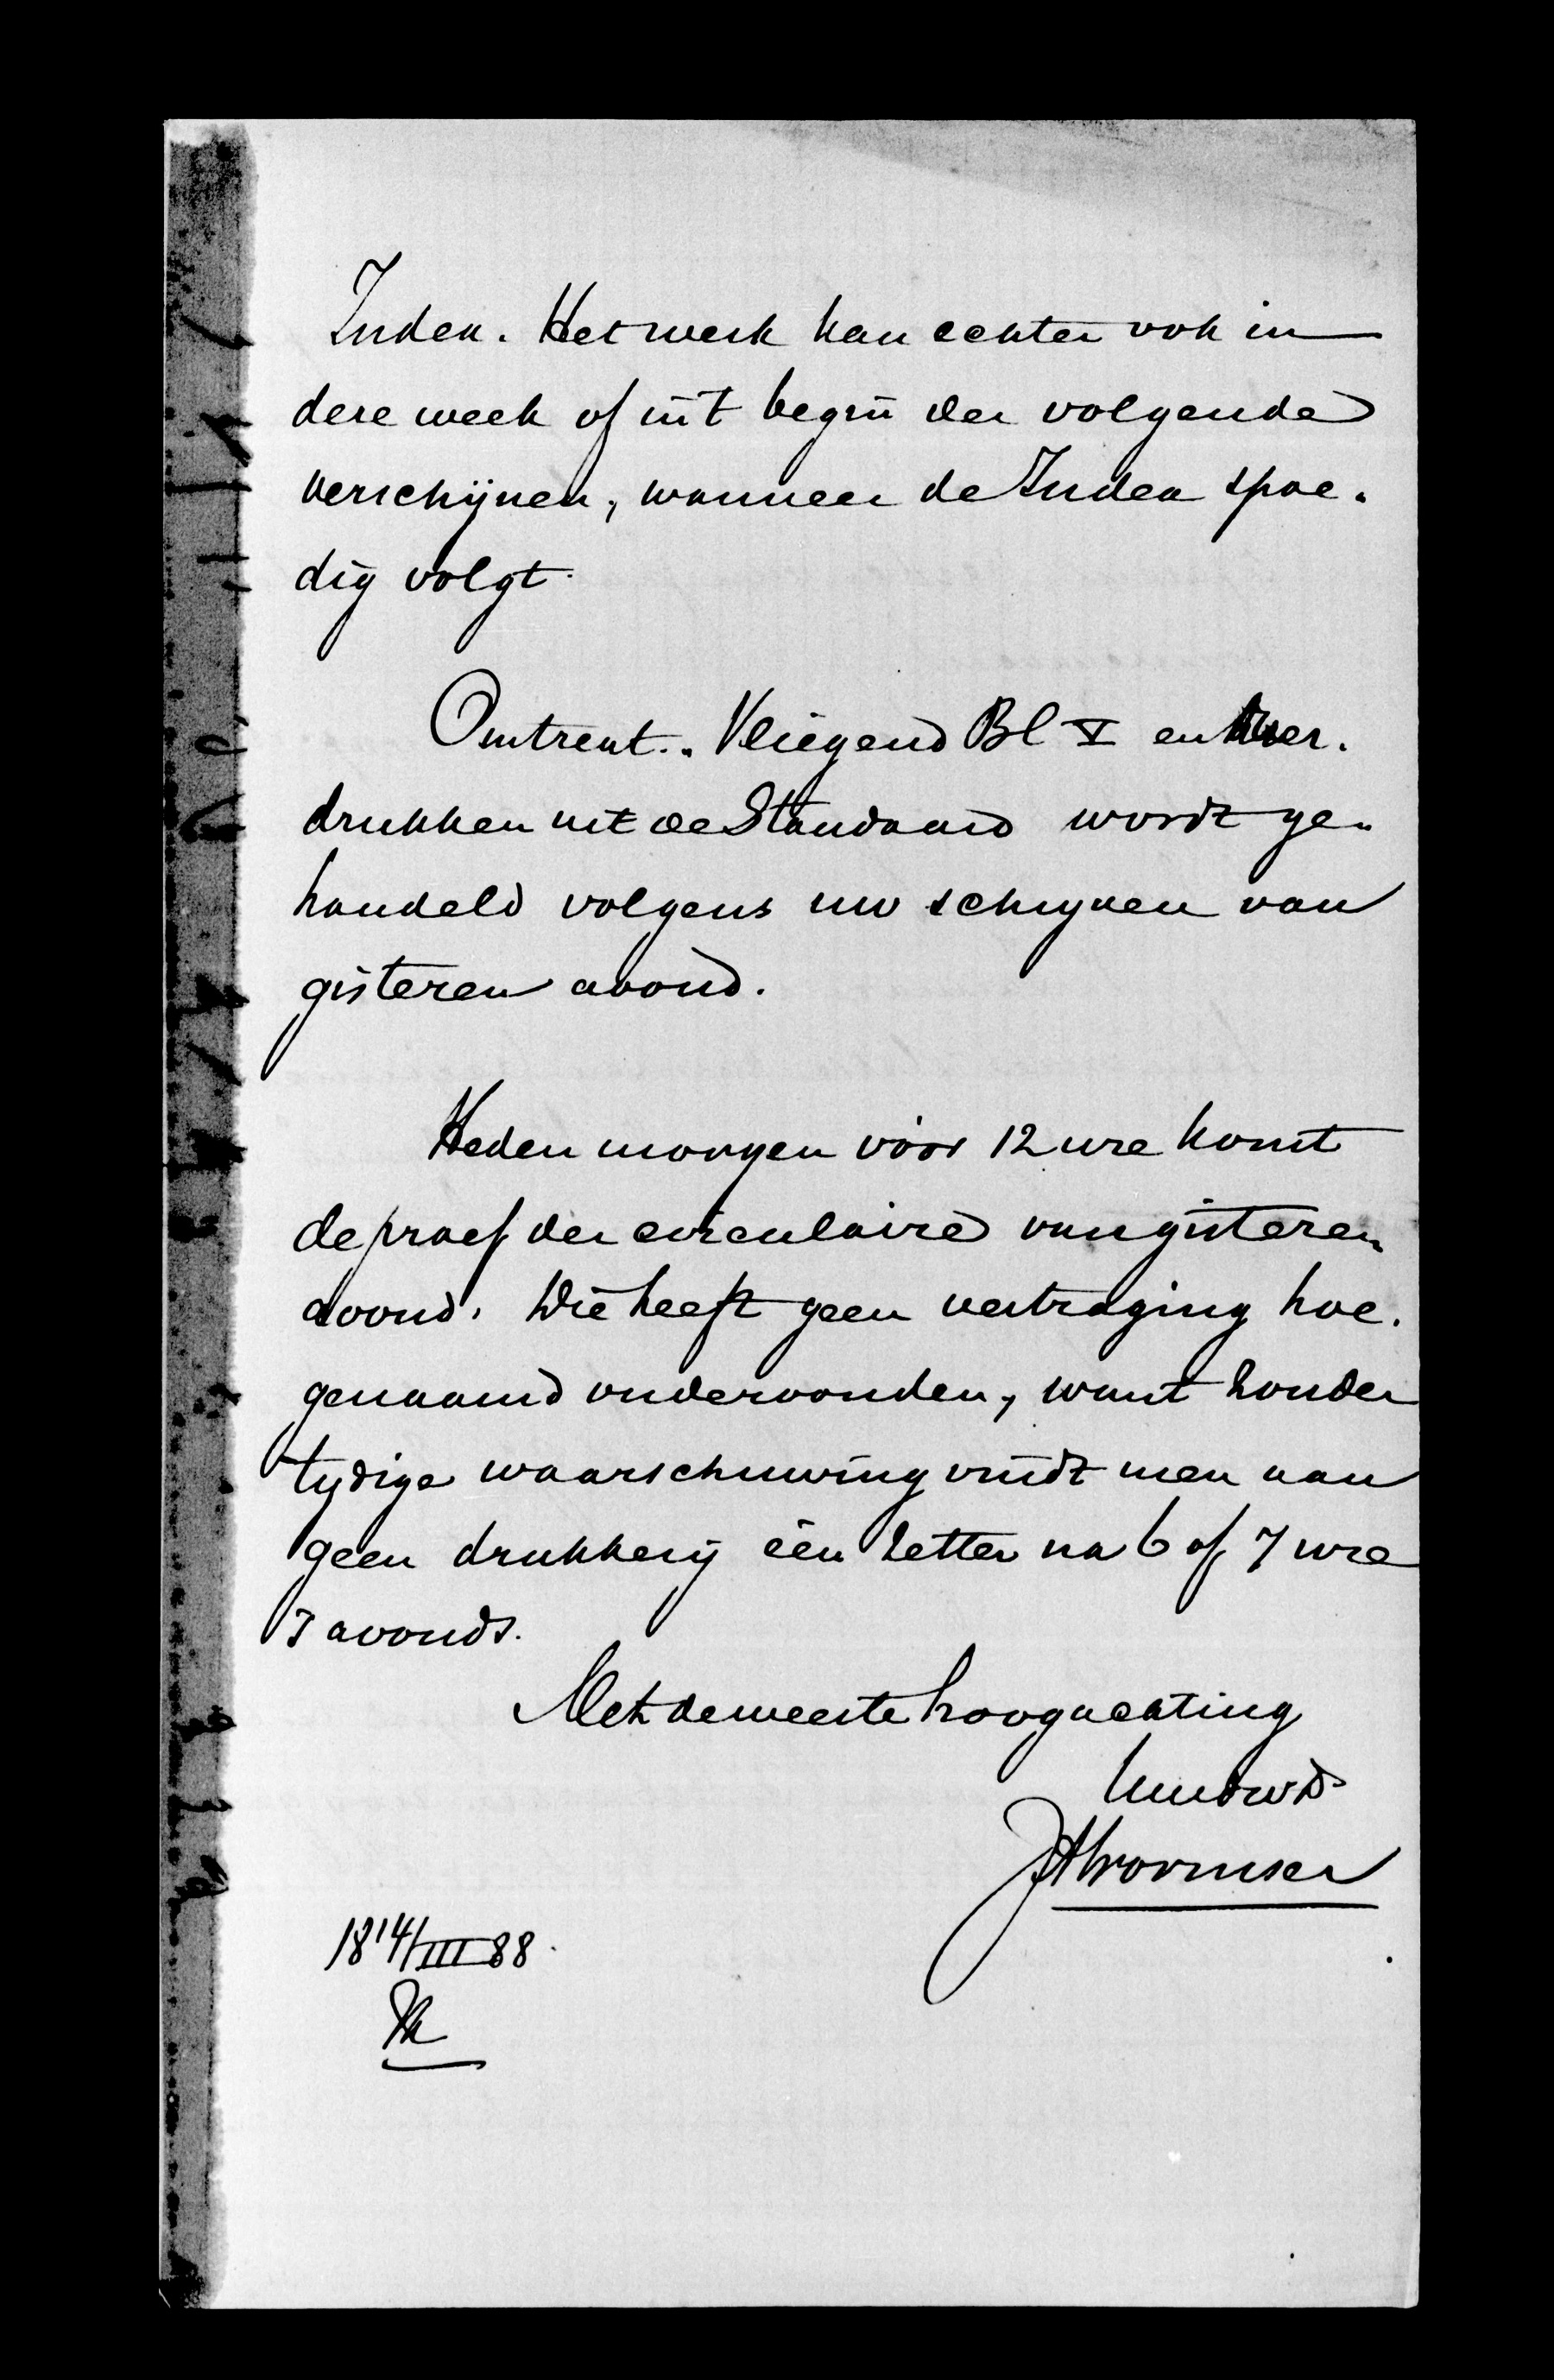 Index. Het werk kan echter ook in
deze week of in 't begin der volgende
verschijnen, wanneer de Index spoe-
dig volgt.
Omtrent Vliegend Bl V en over-
drukken uit de Standaard wordt ge-
handeld volgens uw schrijven van
gisteren avond.
Heden morgen vóór 12 ure komt
de proef der circulaire van gisteren
avond. Die heeft geen vertraging hoe-
genaamd ondervonden, want zonder
tijdige waarschuwing vindt men aan
geen drukkerij één zetter na 6 of 7 ure
's avonds.
Met de meeste hoogachting
Uw dw d
JAWormser
1814/III 88.